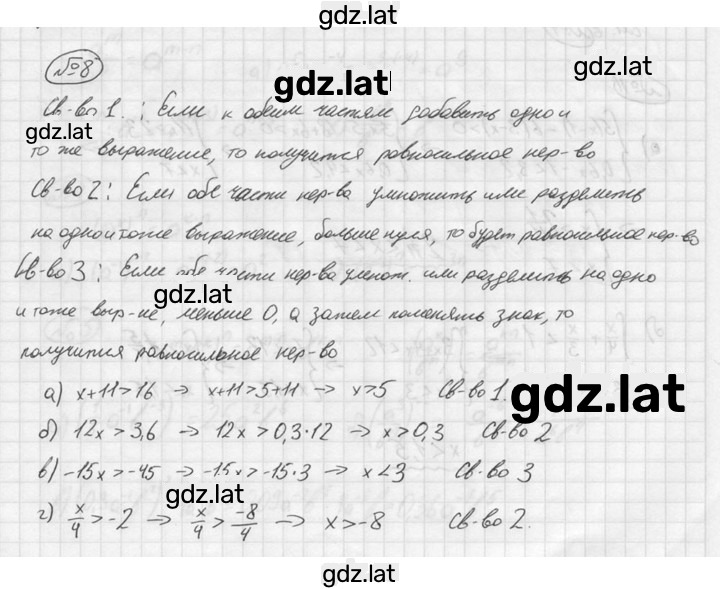 gdz.lat
№8
gdz.lat
gdz.lat
Св-во 1. : Если к обеим частям добавить одно и
gdz.lat
то же выражение, то получится равносильное нер-во
Св-во 2 : Если обе части нер-ва умножить или разделить
на одно и тоже выражение, больше нуля, то будет равносильное нер-во
Св-во 3 : Если обе части нер-ва умнож. или разделить на одно
gdz.lat
и тоже выр-ие, меньше 0, а затем поменять знак, то
получится равносильное нер-во
а) x+11>16 → x+11>5+11 → x>5 Св-во 1.
gdz.lat
б) 12x>3,6 → 12x>0,3·12 → x>0,3 Св-во 2
в) -15x>-45 → -15x>-15·3 → x<3 Св-во 3
gdz.lat
г) x/4 >-2 → x/4 > -8/4 → x>-8 Св-во 2.
gdz.lat